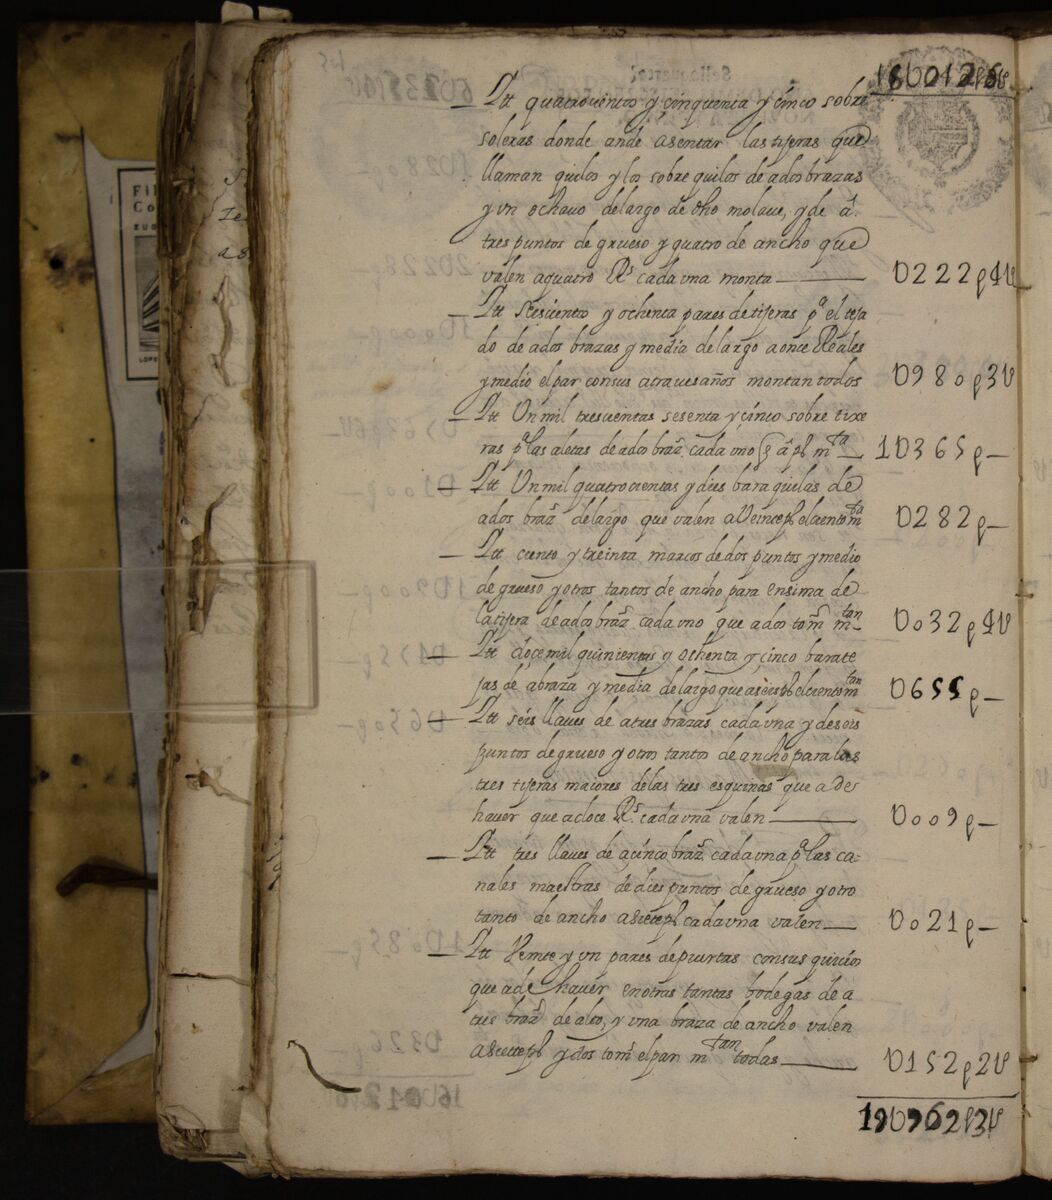 16U012p6U
— Itt quatrocientos y cinquenta y cinco sobre
soleras donde ande asentar las tiferas que
llaman quilos y los sobre quilos de a dos brazas
y un ochavo de largo de dho molave, y de â
tres puntos de grueso y quatro de ancho que
valen a quatro Rs. cada una monta — U222p4U
— Itt seiscientos y ochenta pares de tiferas pa. el teja
do de a dos brazas y media de largo a once Reales
y medio el par con sus atravesaños montan todos U980p3U
— Itt Un mil trescientas sesenta y cinco sobre tixe
ras pa. las aletas de a dos braz. cada uno â pso mta — 1U365p—
— Itt Un mil quatrocientas y dies baraquilas de
a dos braz. de largo que valen a Veinte ps el ciento mta U282p—
— Itt ciento y treinta marcos de dos puntos y medio
de grueso y otros tantos de ancho para ensima de
la tifera de a dos braz. cada uno que a dos tom. mtan U032p4U
— Itt doce mil quinientas y ochenta y cinco barate
jas de â braza y media de largo que a seis ps el ciento mtan U655p—
— Itt seis llaves de a tres brazas cada una y de seis
puntos de grueso y otros tantos de ancho para las
tres tiferas maiores de las tres esquinas que a de
haver que a doce Rs. cada una valen — U009p—
— Itt tres llaves de a cinco braz. cada una pa. las ca-
nales maestras de dies puntos de grueso y otro
tanto de ancho a siete ps cada una valen — U021p—
— Itt Veinte y un pares de puertas con sus quicios
que a de haver en otras tantas bodegas de a
tres braz. de alto, y una braza de ancho valen
a siete ps y dos tom. el par mtan todas — U152p2U
19U962p3U